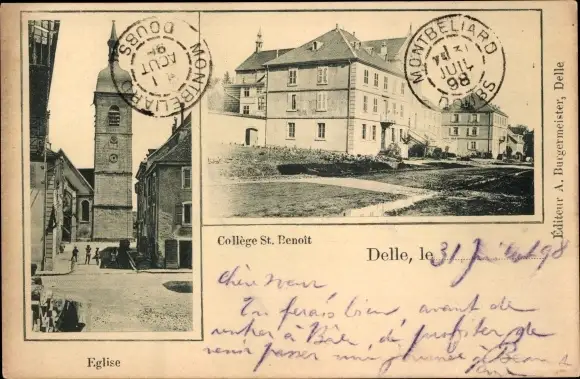 MONTBELIARD
1
AOUT
98
DOUBS
MONTBELIARD
AOUT
98
DOUBS
Editeur A. Burgermeister, Delle
Collège St. Benoit
Delle, le 31 Juillet 98
Chère
Tu ferais bien, avant de
rentrer à Bâle, de profiter de
venir passer une journée à
Eglise